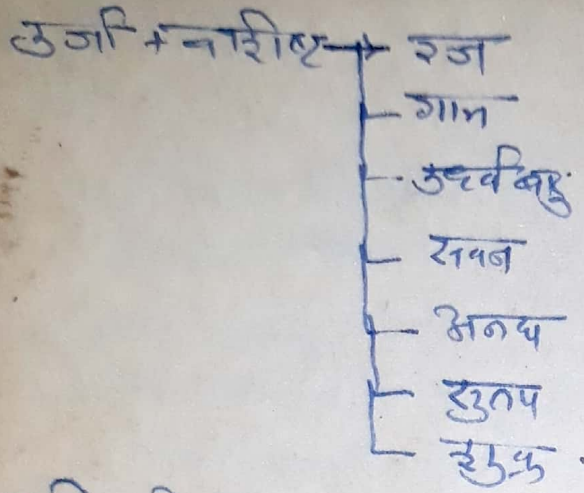 उर्जा + वाशीष्ट → रज
गान
उर्धवबाहु
सवन
अनघ
सुतप
शुक्र